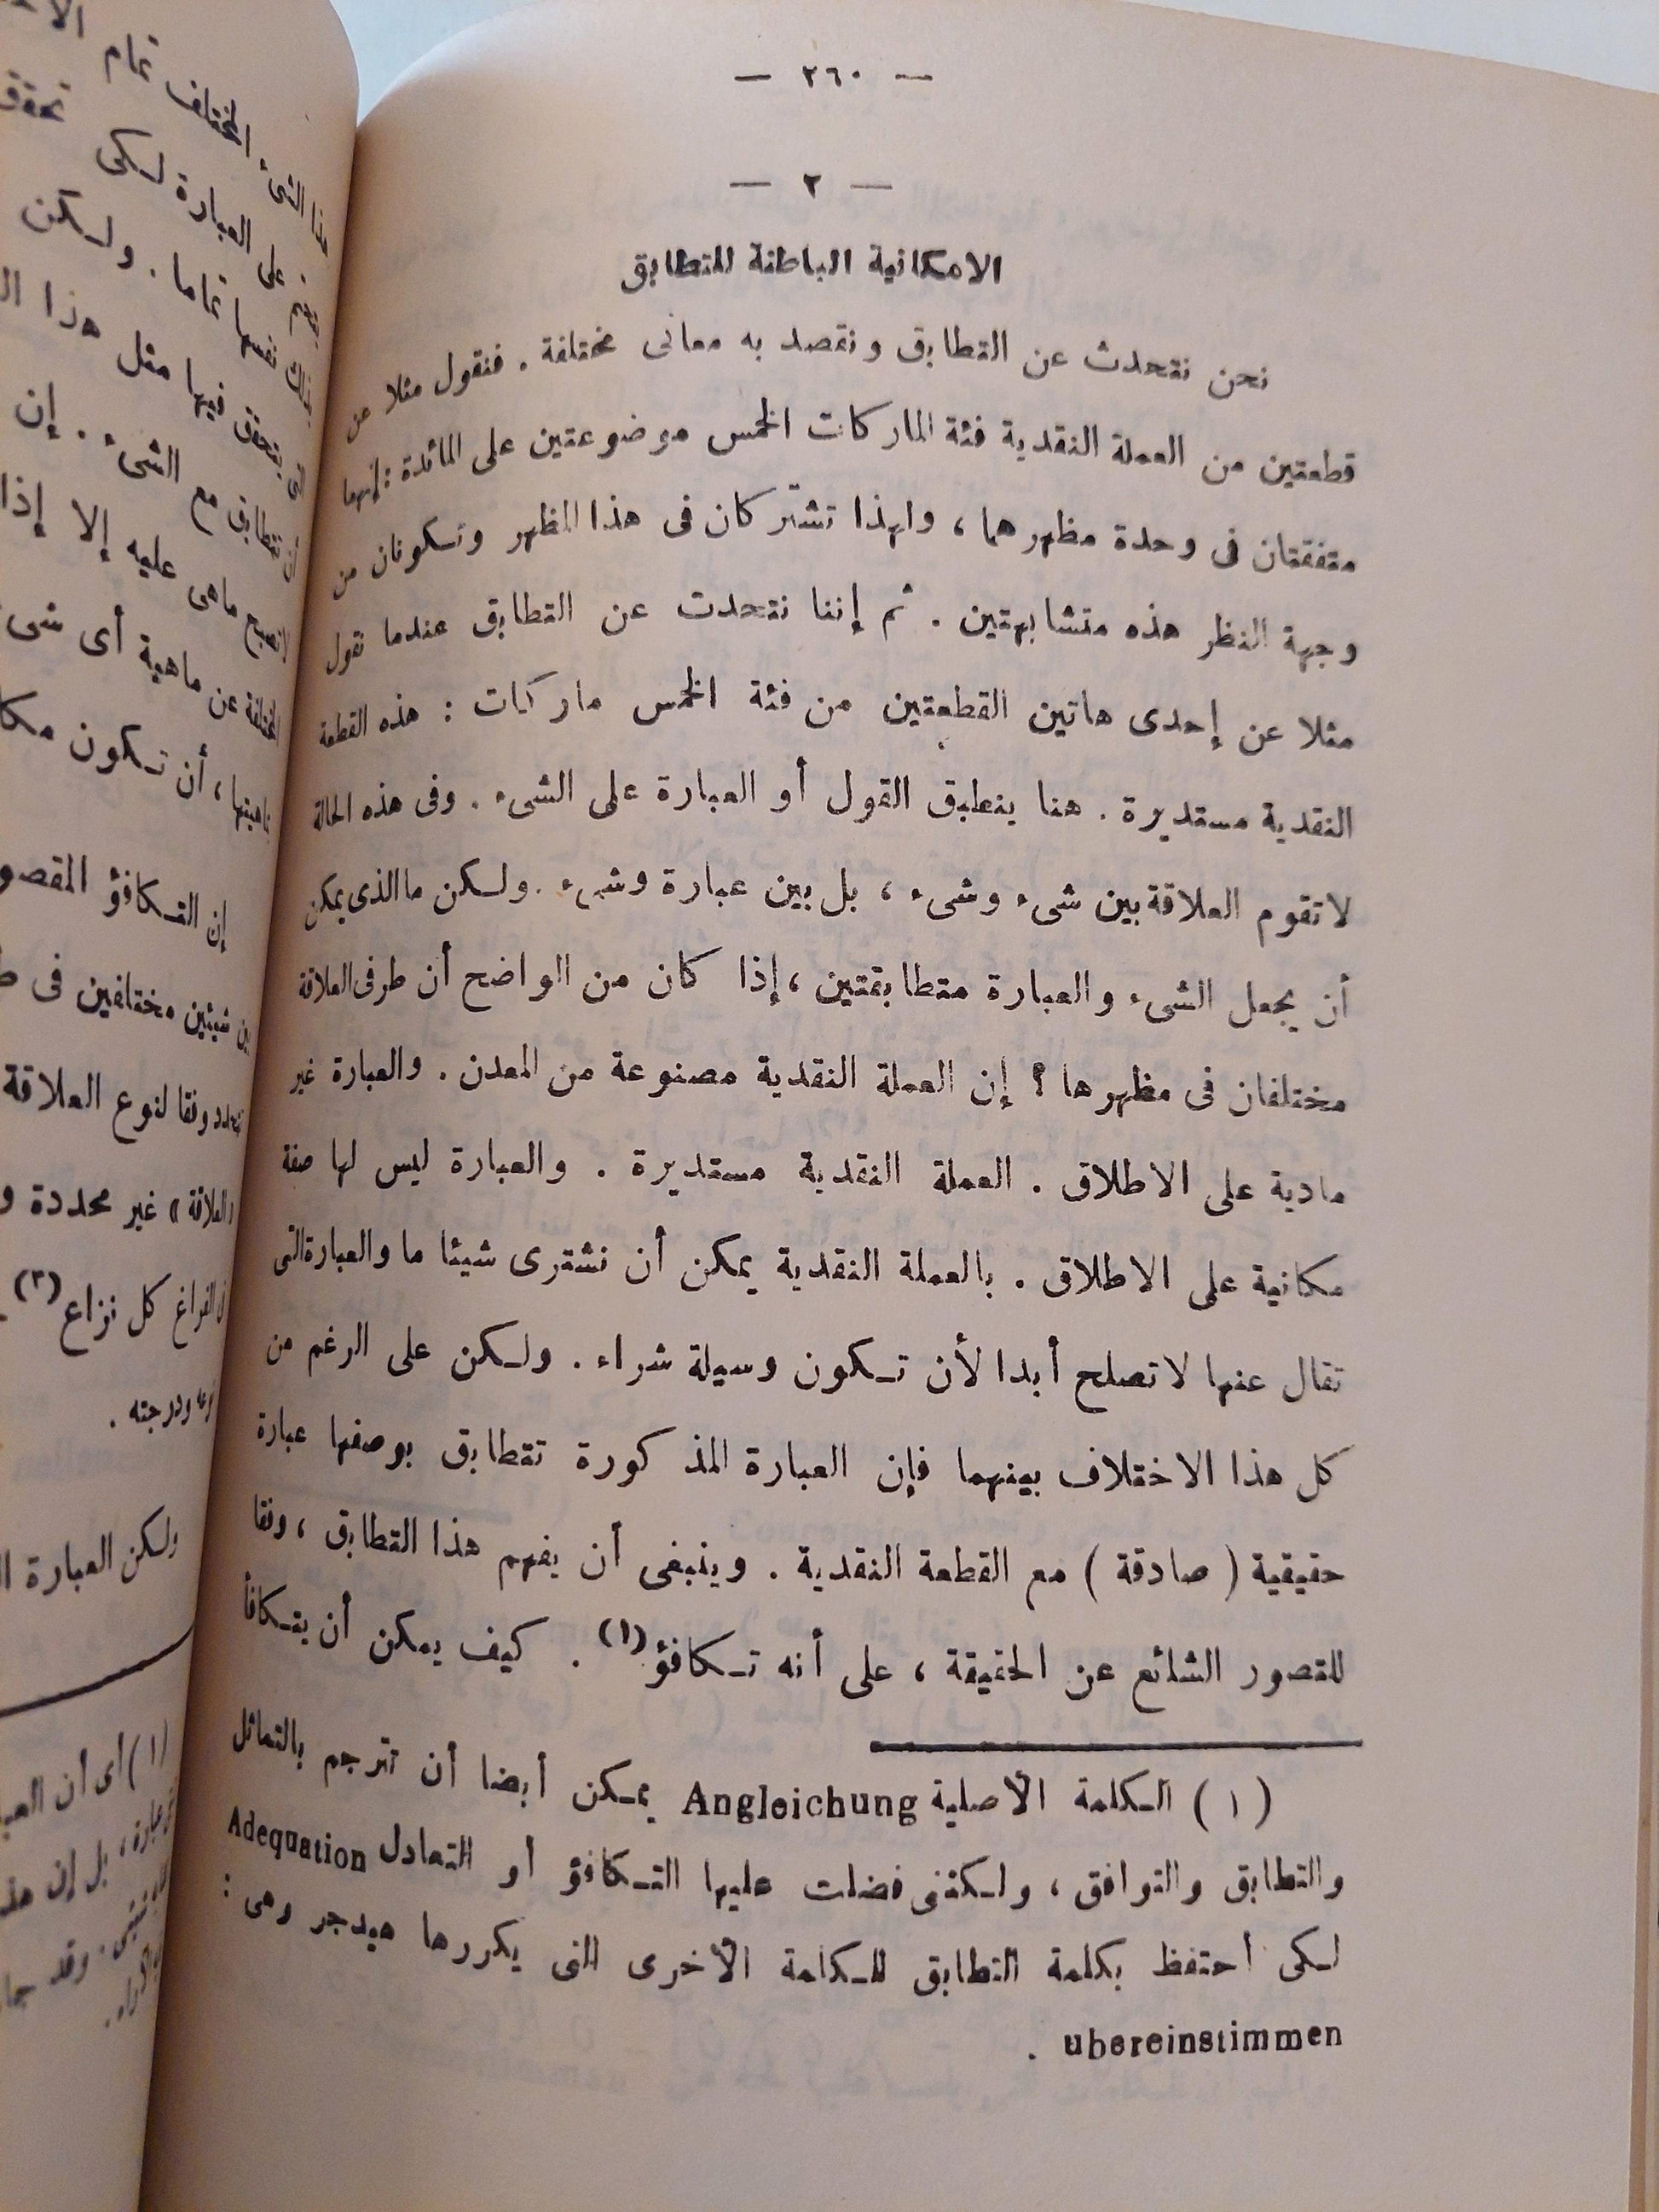 — ٢٦٠ —
— ٢ —
الامكانية الباطنة للتطابق
نحن نتحدث عن التطابق ونقصد به معانى مختلفة . فنقول مثلا عن
قطعتين من العملة النقدية فئة الماركات الخمس موضوعتين على المائدة : إنهما
متفقتان فى وحدة مظهرهما ، ولهذا تشتركان فى هذا المظهر وتكونان من
وجهة النظر هذه متشابهتين . ثم إننا نتحدث عن التطابق عندما نقول
مثلا عن إحدى هاتين القطعتين من فئة الخمس ماركات : هذه القطعة
النقدية مستديرة . هنا ينطبق القول أو العبارة على الشىء . وفى هذه الحالة
لا تقوم العلاقة بين شىء وشىء ، بل بين عبارة وشىء . ولكن ما الذى يمكن
أن يجعل الشىء والعبارة متطابقتين ، إذا كان من الواضح أن طرفى العلاقة
مختلفان فى مظهرها ؟ إن العملة النقدية مصنوعة من المعدن . والعبارة غير
مادية على الاطلاق . العملة النقدية مستديرة . والعبارة ليس لها صفة
مكانية على الاطلاق . بالعملة النقدية يمكن أن نشترى شيئا ما والعبارة التى
تقال عنها لا تصلح أبدا لأن تكون وسيلة شراء . ولكن على الرغم من
كل هذا الاختلاف بينهما فإن العبارة المذكورة تتطابق بوصفها عبارة
حقيقية ( صادقة ) مع القطعة النقدية . وينبغى أن يفهم هذا التطابق ، وفقا
للتصور الشائع عن الحقيقة ، على أنه تكافؤ (١) . كيف يمكن أن يتكافأ
(١) الكلمة الأصلية Angleichung يمكن أيضا أن تترجم بالتماثل
والتطابق والتوافق ، ولكننى فضلت عليها التكافؤ أو التعادل Adequation
لكى أحتفظ بكلمة التطابق للكلمة الأخرى التى يكررها هيدجر وهى :
ubereinstimmen .
المختلف تمام
هذا الشىء
على العبارة لكى تحقق
نفسها تماما . ولكن
يتحقق فيها مثل هذا
تتطابق مع الشىء . إن
ماهى عليه إلا إذا
المختلفة عن ماهية أى شىء
ماهيتها ، أن تكون
إن التكافؤ
بين شيئين مختلفين فى
وفقا لنوع العلاقة
العلاقة » غير محددة
الفراغ كل نزاع (٢) .
ودرجته .
ولكن العبارة
(١) أى أن
بل إن
وقد